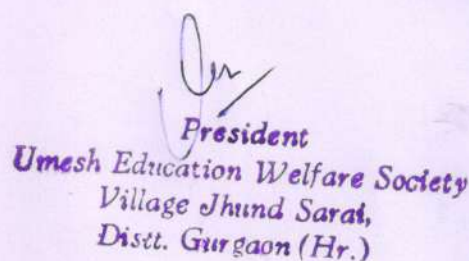 President
Umesh Education Welfare Society
Village Jhund Sarai,
Distt. Gurgaon (Hr.)